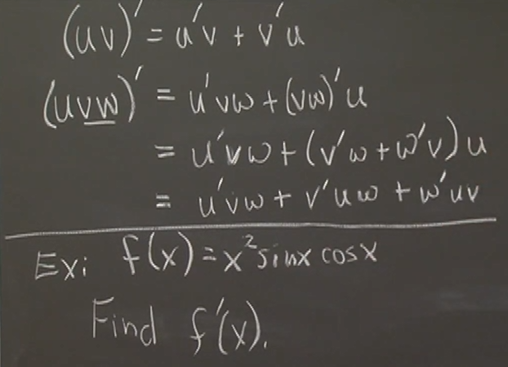 (uv)' = u'v + v'u
(uvw)' = u'vw + (vw)'u
= u'vw + (v'w + w'v)u
= u'vw + v'uw + w'uv
Ex: f(x) = x²sinx cosx
Find f'(x).